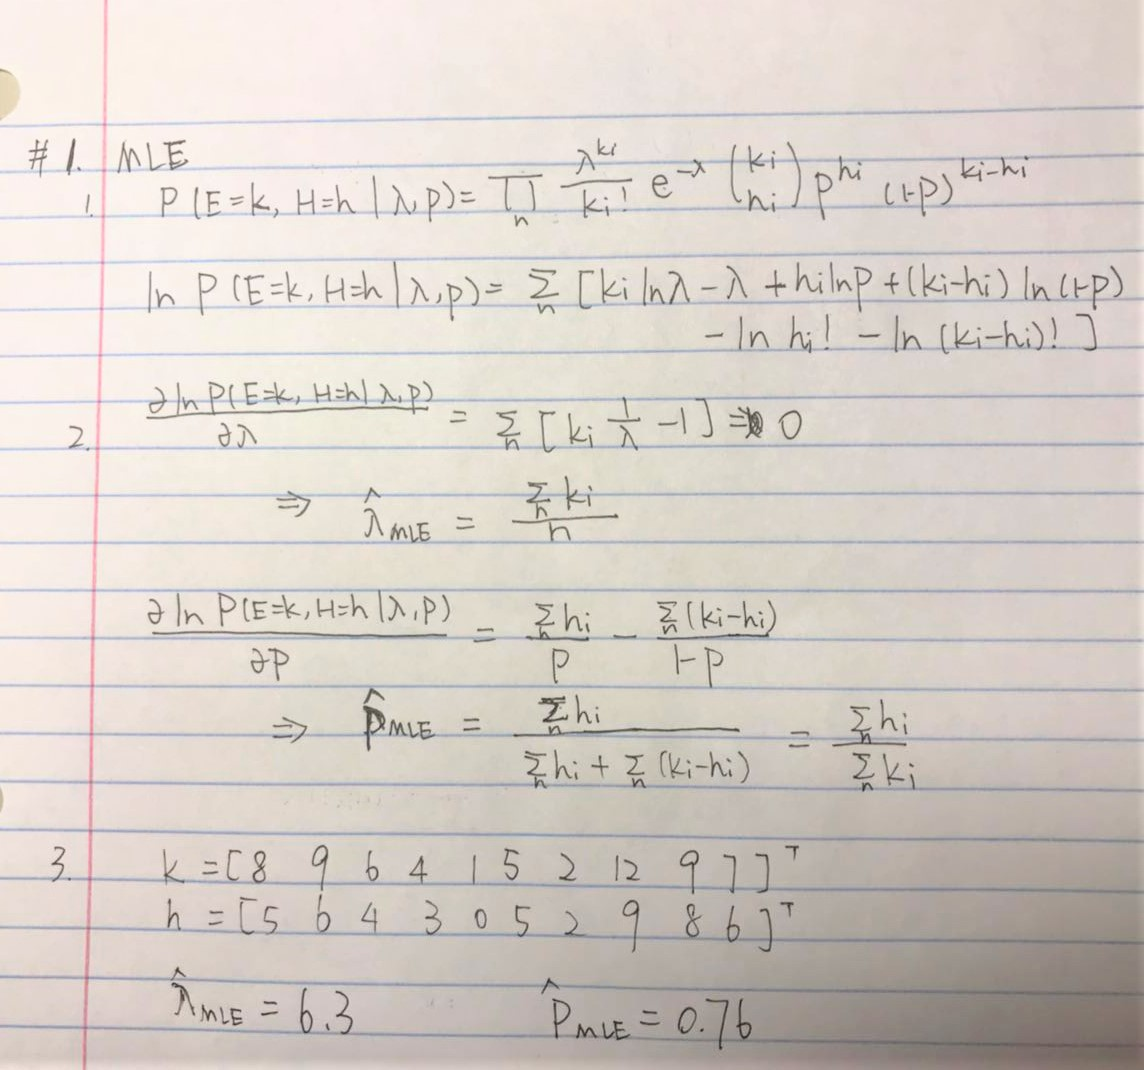 #1. MLE
1. P(E=k, H=h | λ,p) = ∏_n λ^ki / ki! e^-λ (ki hi) p^hi (1-p)^ki-hi
ln P(E=k, H=h | λ,p) = Σ_n [ki lnλ - λ + hi lnp + (ki-hi) ln(1-p)
- ln hi! - ln (ki-hi)! ]
2. ∂ ln P(E=k, H=h | λ,p) / ∂λ = Σ_n [ki 1/λ - 1] = 0
⇒ λ̂_MLE = Σ_n ki / n
∂ ln P(E=k, H=h | λ,p) / ∂p = Σ_n hi / p - Σ_n (ki-hi) / 1-p
⇒ p̂_MLE = Σ_n hi / Σ_n hi + Σ_n (ki-hi) = Σ_n hi / Σ_n ki
3. k = [8 9 6 4 1 5 2 12 9 7]^T
h = [5 6 4 3 0 5 2 9 8 6]^T
λ̂_MLE = 6.3 p̂_MLE = 0.76